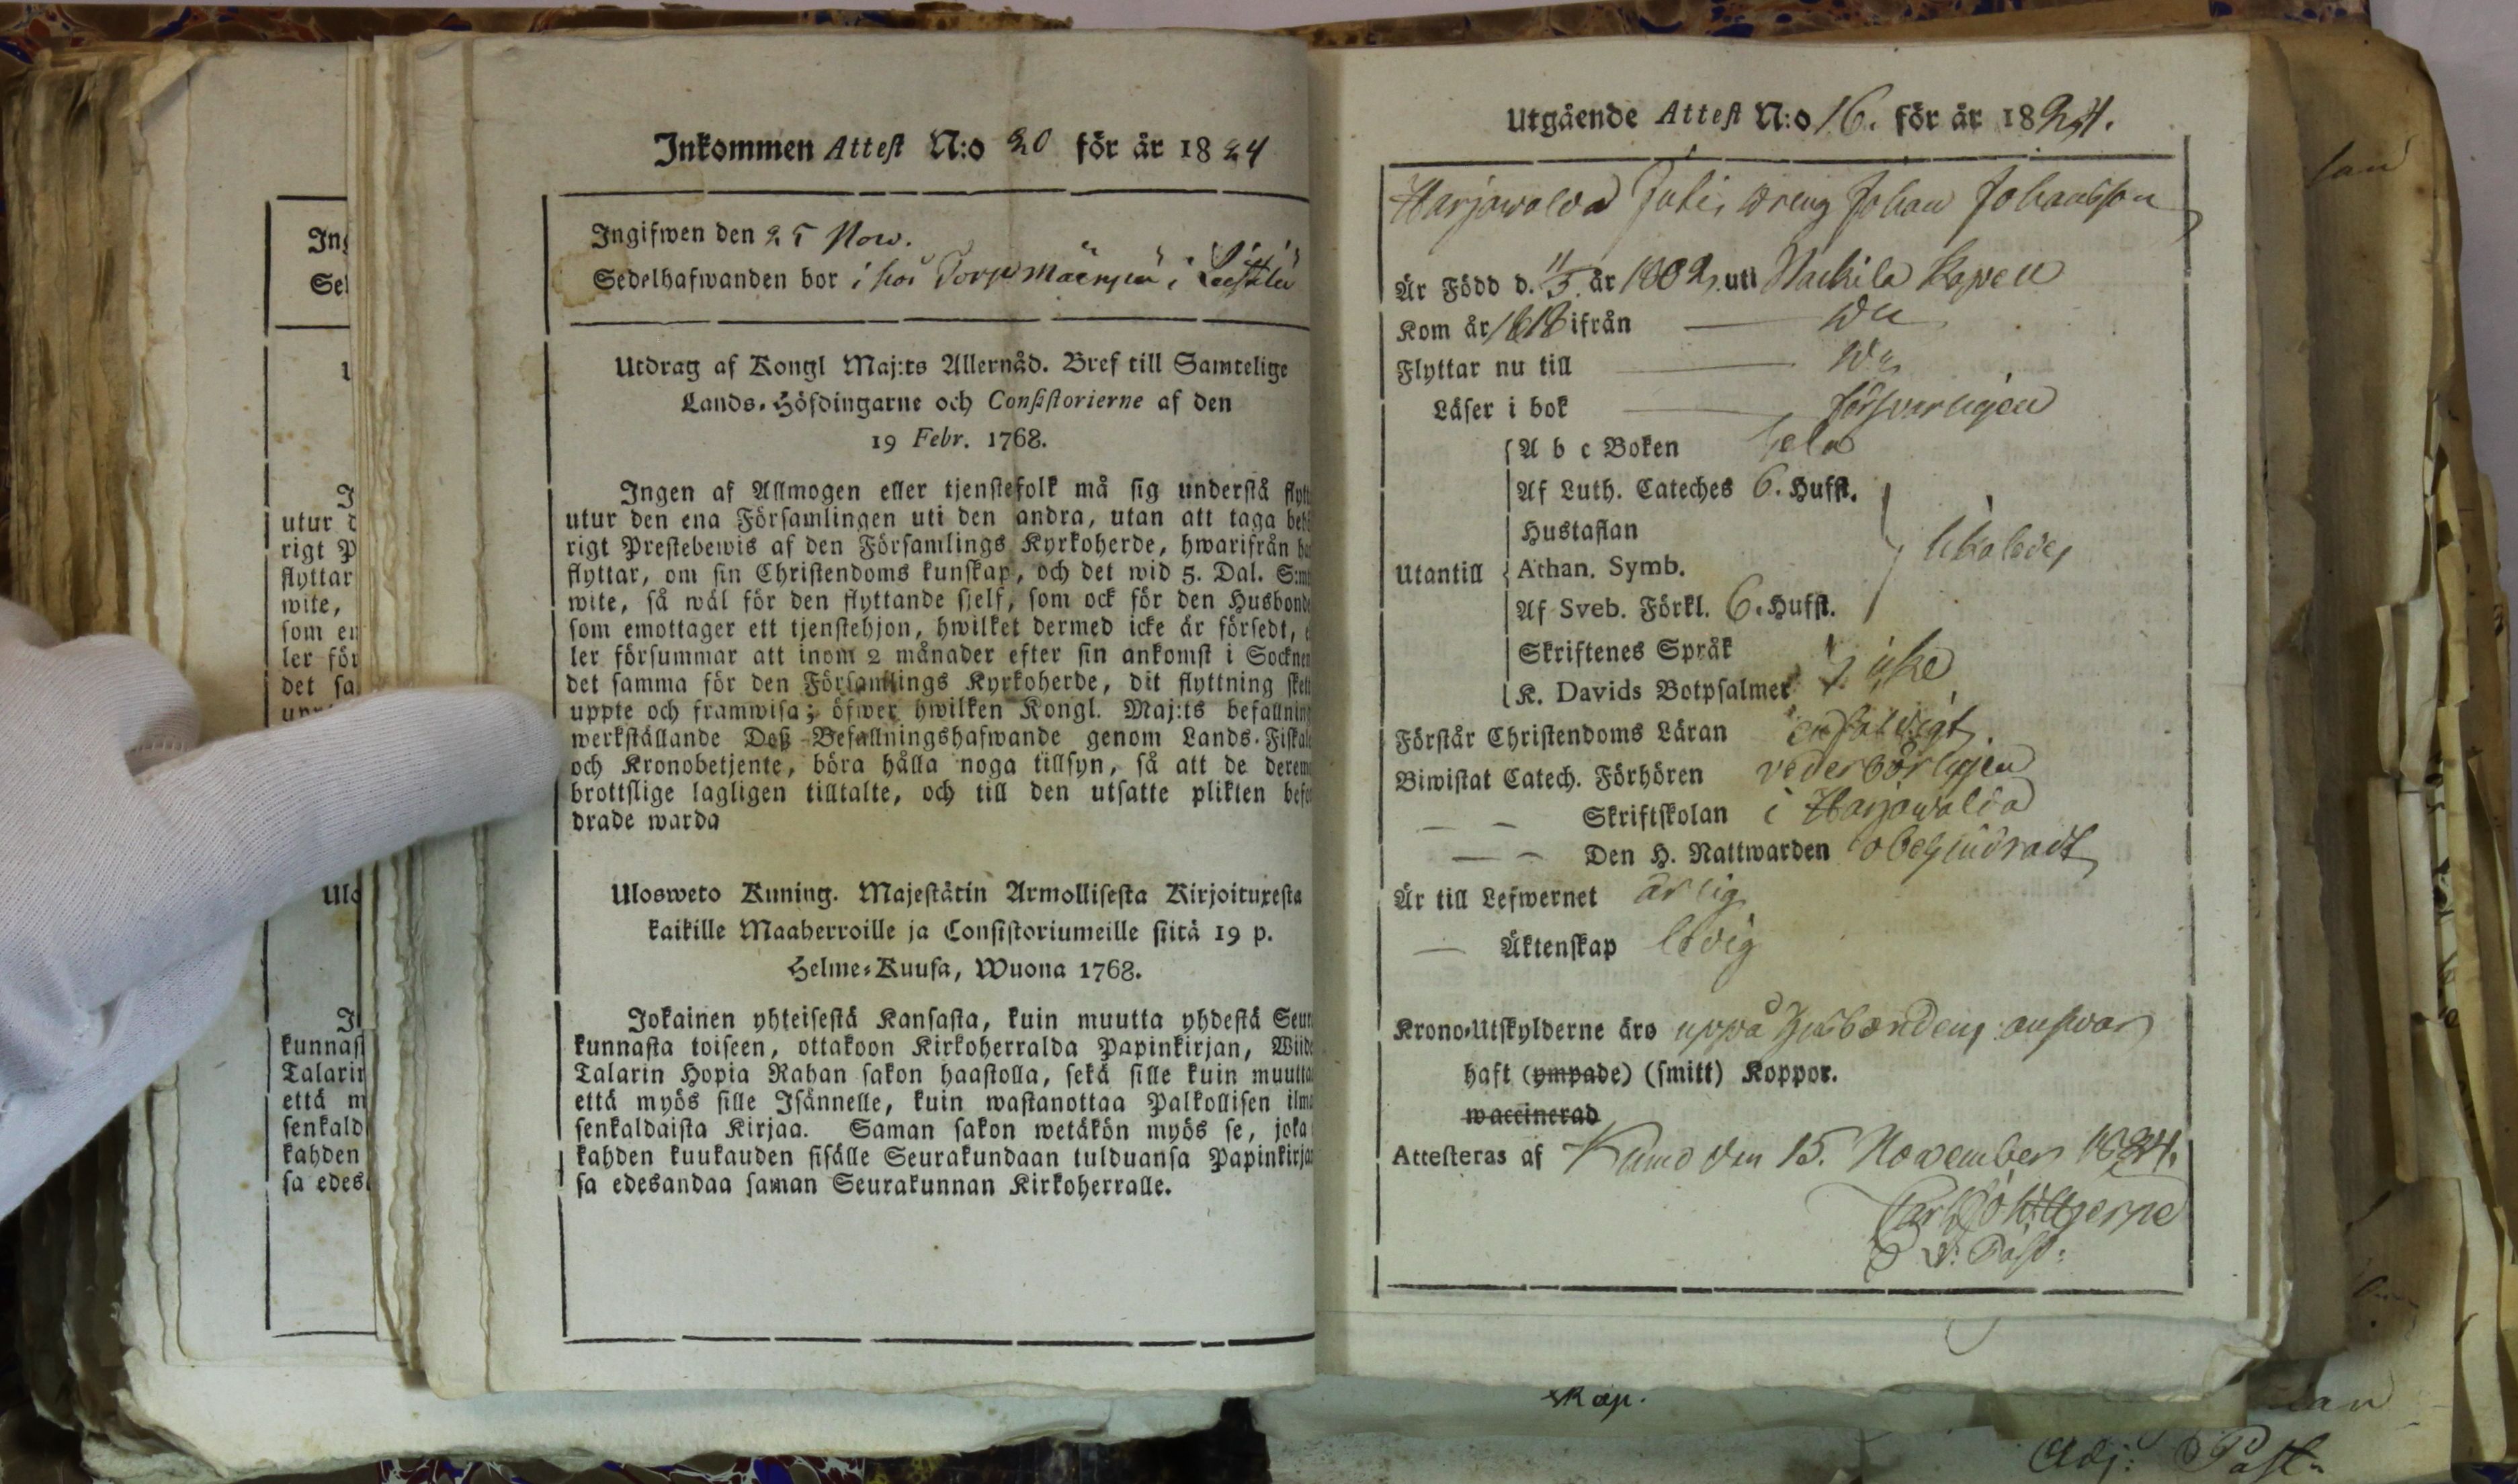 Inkommen Attest N:o 20 för år 1824
Ingifwen den 25 Now.
Sedelhafwanden bor i hos Torp i
Utdrag af Kongl Maj:ts Allernåd. Bref till Samtelige
Lands-Höfdingarne och Consistorierne af den
19 Febr. 1768.
Ingen af Allmogen eller tjenstefolk må sig understå
utur den ena Församlingen uti den andra, utan att taga
rigt Prestebewis af den Församlings Kyrkoherde, hwarifrån
flyttar, om sin Christendoms kunskap, och det wid 5. Dal.
wite, så wäl för den flyttande sjelf, som ock för den
som emottager ett tjenstehjon, hwilket dermed icke är försedt,
ler försummar att inom 2 månader efter sin ankomst i
det samma för den Församlings Kyrkoherde, dit flyttning
uppte och framwisa; öfwer hwilken Kongl. Maj:ts
werkställande Deß Befallningshafwande genom
och Kronobetjente, böra hålla noga tillsyn, så att de
brottslige lagligen tilltalte, och till den utsatte plikten
drade warda
Ulosweto Kuning. Majestätin Armollisesta Kirjoituxesta
kaikille Maaherroille ja Consistoriumeille siitä 19 p.
Helme-Kuusa, Wuona 1768.
Jokainen yhteisestä Kansasta, kuin muutta yhdestä
kunnasta toiseen, ottakoon Kirkoherralda Papinkirjan,
Talarin Hopia Rahan sakon haastolla, sekä sille kuin
että myös sille Isännelle, kuin wastanottaa Palkollisen
senkaldaista Kirjaa. Saman sakon wetäkön myös se, joka
kahden kuukauden sisälle Seurakundaan tulduansa
sa edesandaa saman Seurakunnan Kirkoherralle.
Utgående Attest N:o 16. för år 1824.
Harjawalda dreng Johan Johansson
Är Född d. 11/5 år 1802, uti Nackila Kapell
Kom år 1818 ifrån — Do
Flyttar nu till — Do
Läser i bok — försvarligen
A b c Boken hela
Af Luth. Cateches 6. Hufst.
Hustaflan
Utantill Athan. Symb. likaledes
Af Sveb. Förkl. 6. Hufst.
Skriftenes Språk
K. Davids Botpsalmer icke
Förstår Christendoms Läran enfaldigt.
Biwistat Catech. Förhören vederbörligen
— — Skriftskolan i Harjawalda
— — Den H. Nattwarden obehindradt
Är till Lefwernet ärlig
— Äktenskap ledig
Krono-Utskylderne äro uppå husbondens answar
haft (ympade) (smitt) Koppor.
waccinerad
Attesteras af Kumo den 15. November 1824.
v. Past:
kap.
Adj: Past.